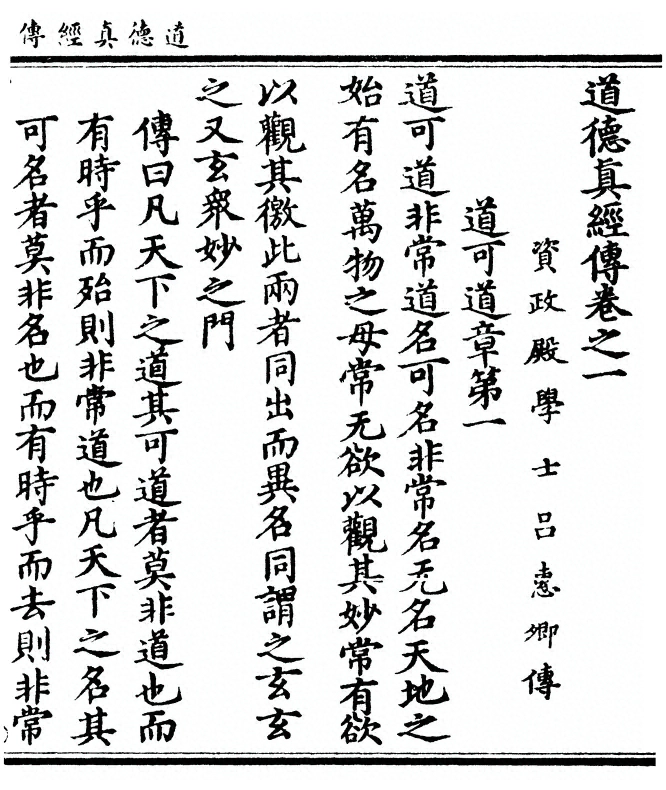 道德真經傳
道德眞經傳卷之一
資政殿學士吕惠卿傳
道可道章第一
道可道非常道名可名非常名无名天地之
始有名萬物之母常无欲以觀其妙常有欲
以觀其徼此兩者同出而異名同謂之玄玄
之又玄衆妙之門
傳曰凡天下之道其可道者莫非道也而
有時乎而殆則非常道也凡天下之名其
可名者莫非名也而有時乎而去則非常